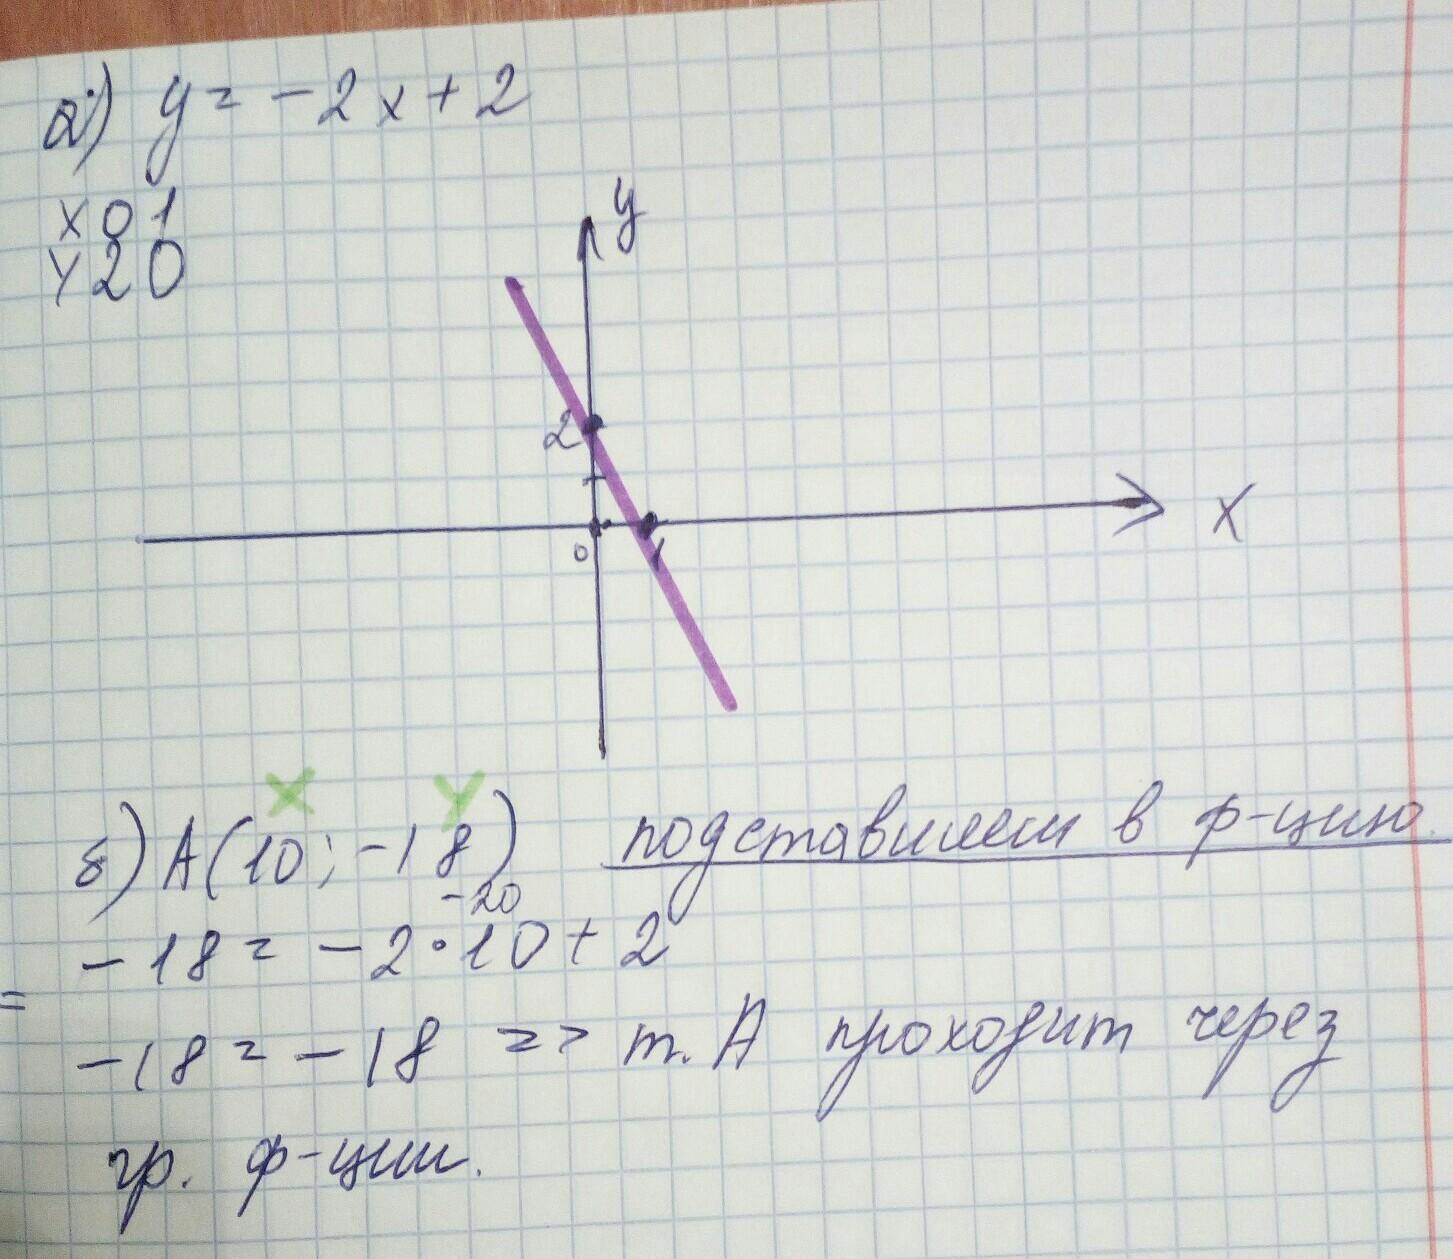 а) y = -2x + 2
x 0 1
y 2 0
y
2
0
1
x
x y
б) А(10; -18) подставляем в ф-цию
-20
-18 = -2·10 + 2
=
-18 = -18 => т. А проходит через
гр. ф-ции.